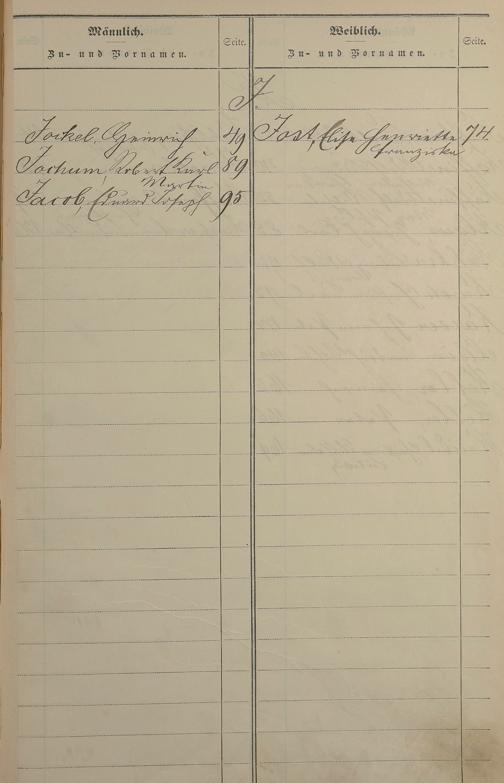 Männlich.
Zu- und Vornamen.
Seite.
Weiblich.
Zu- und Vornamen.
Seite.
J.
Jockel, Heinrich 49
Jochum, Robert Karl 89
Martin
Jacob, Eduard Joseph 95
Jost, Elise Henriette 74.
Franziska